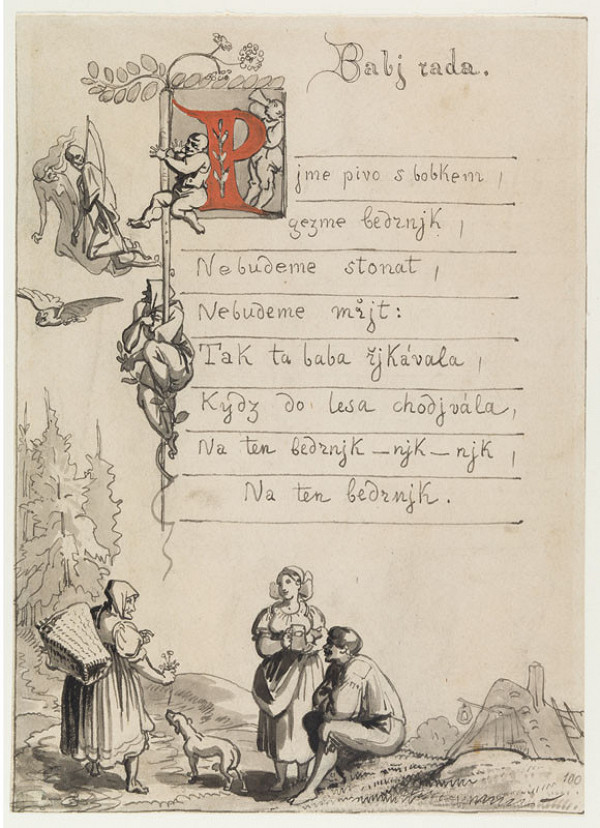 Babj rada.
Pjme pivo s bobkem,
gezme bedrnjk,
Nebudeme stonat,
Nebudeme mřjt:
Tak ta baba řjkávala,
Kdyz do lesa chodjvála,
Na ten bedrnjk–njk–njk,
Na ten bedrnjk.
100